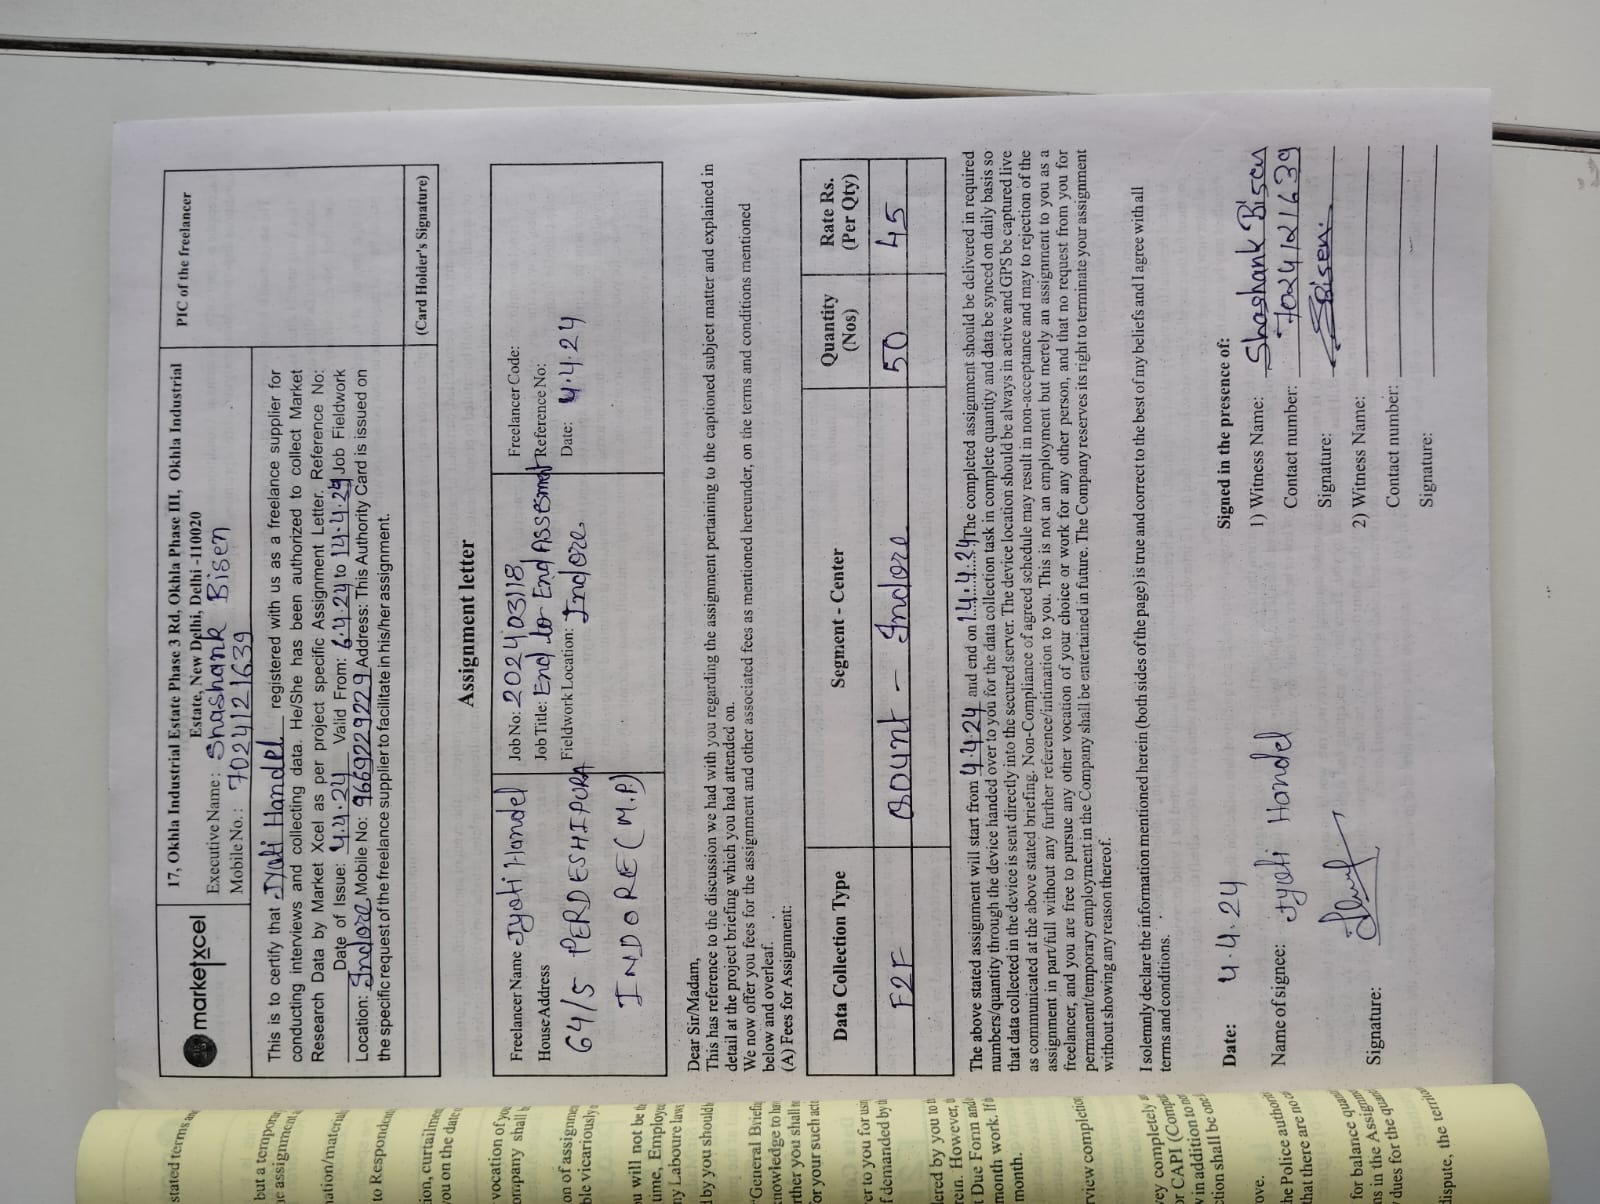 marketxcel
17, Okhla Industrial Estate Phase 3 Rd, Okhla Phase III, Okhla Industrial
Estate, New Delhi, Delhi -110020
Executive Name: Shashank Bisen
Mobile No.: 7024121639
PIC of the freelancer
This is to certify that Jyoti Handel registered with us as a freelance supplier for
conducting interviews and collecting data. He/She has been authorized to collect Market
Research Data by Market Xcel as per project specific Assignment Letter. Reference No:
Date of Issue: 4.4.24 Valid From: 6.4.24 to 14.4.24 Job Fieldwork
Location: Indore Mobile No: 9669229229 Address: This Authority Card is issued on
the specific request of the freelance supplier to facilitate in his/her assignment.
(Card Holder's Signature)
Assignment letter
Freelancer Name Jyoti Handel
House Address
64/5 PERDESHIPURA
INDORE (M.P)
Job No: 202403118
Job Title: End to End Assesment
Fieldwork Location: Indore
Freelancer Code:
Reference No:
Date: 4.4.24
Dear Sir/Madam,
This has reference to the discussion we had with you regarding the assignment pertaining to the captioned subject matter and explained in
detail at the project briefing which you had attended on.
We now offer you fees for the assignment and other associated fees as mentioned hereunder, on the terms and conditions mentioned
below and overleaf.
(A) Fees for Assignment:
Data Collection Type Segment - Center Quantity (Nos) Rate Rs. (Per Qty)
F2F - Indore 50 45
The above stated assignment will start from 4.4.24 and end on 14.4.24 The completed assignment should be delivered in required
numbers/quantity through the device handed over to you for the data collection task in complete quantity and data be synced on daily basis so
that data collected in the device is sent directly into the secured server. The device location should be always in active and GPS be captured live
as communicated at the above stated briefing. Non-Compliance of agreed schedule may result in non-acceptance and may to rejection of the
assignment in part/full without any further reference/intimation to you. This is not an employment but merely an assignment to you as a
freelancer, and you are free to pursue any other vocation of your choice or work for any other person, and that no request from you for
permanent/temporary employment in the Company shall be entertained in future. The Company reserves its right to terminate your assignment
without showing any reason thereof.
I solemnly declare the information mentioned herein (both sides of the page) is true and correct to the best of my beliefs and I agree with all
terms and conditions.
Date: 4.4.24
Name of signee: Jyoti Handel
Signature:
Signed in the presence of:
1) Witness Name: Shashank Bisen
Contact number: 7024121639
Signature: Bisen
2) Witness Name:
Contact number:
Signature:
stated terms
but a
assignment
to Respondent
vocation of
shall
of assignment
vicariously
will not be
Labour laws
by you should
General
you shall
for your such
to you for
demanded by
by you to
However,
Due Form and
month work. If
month.
completion
completely
or CAPI
in addition to
shall be
the Police
that there are no
for balance
in the
dues for the
dispute, the